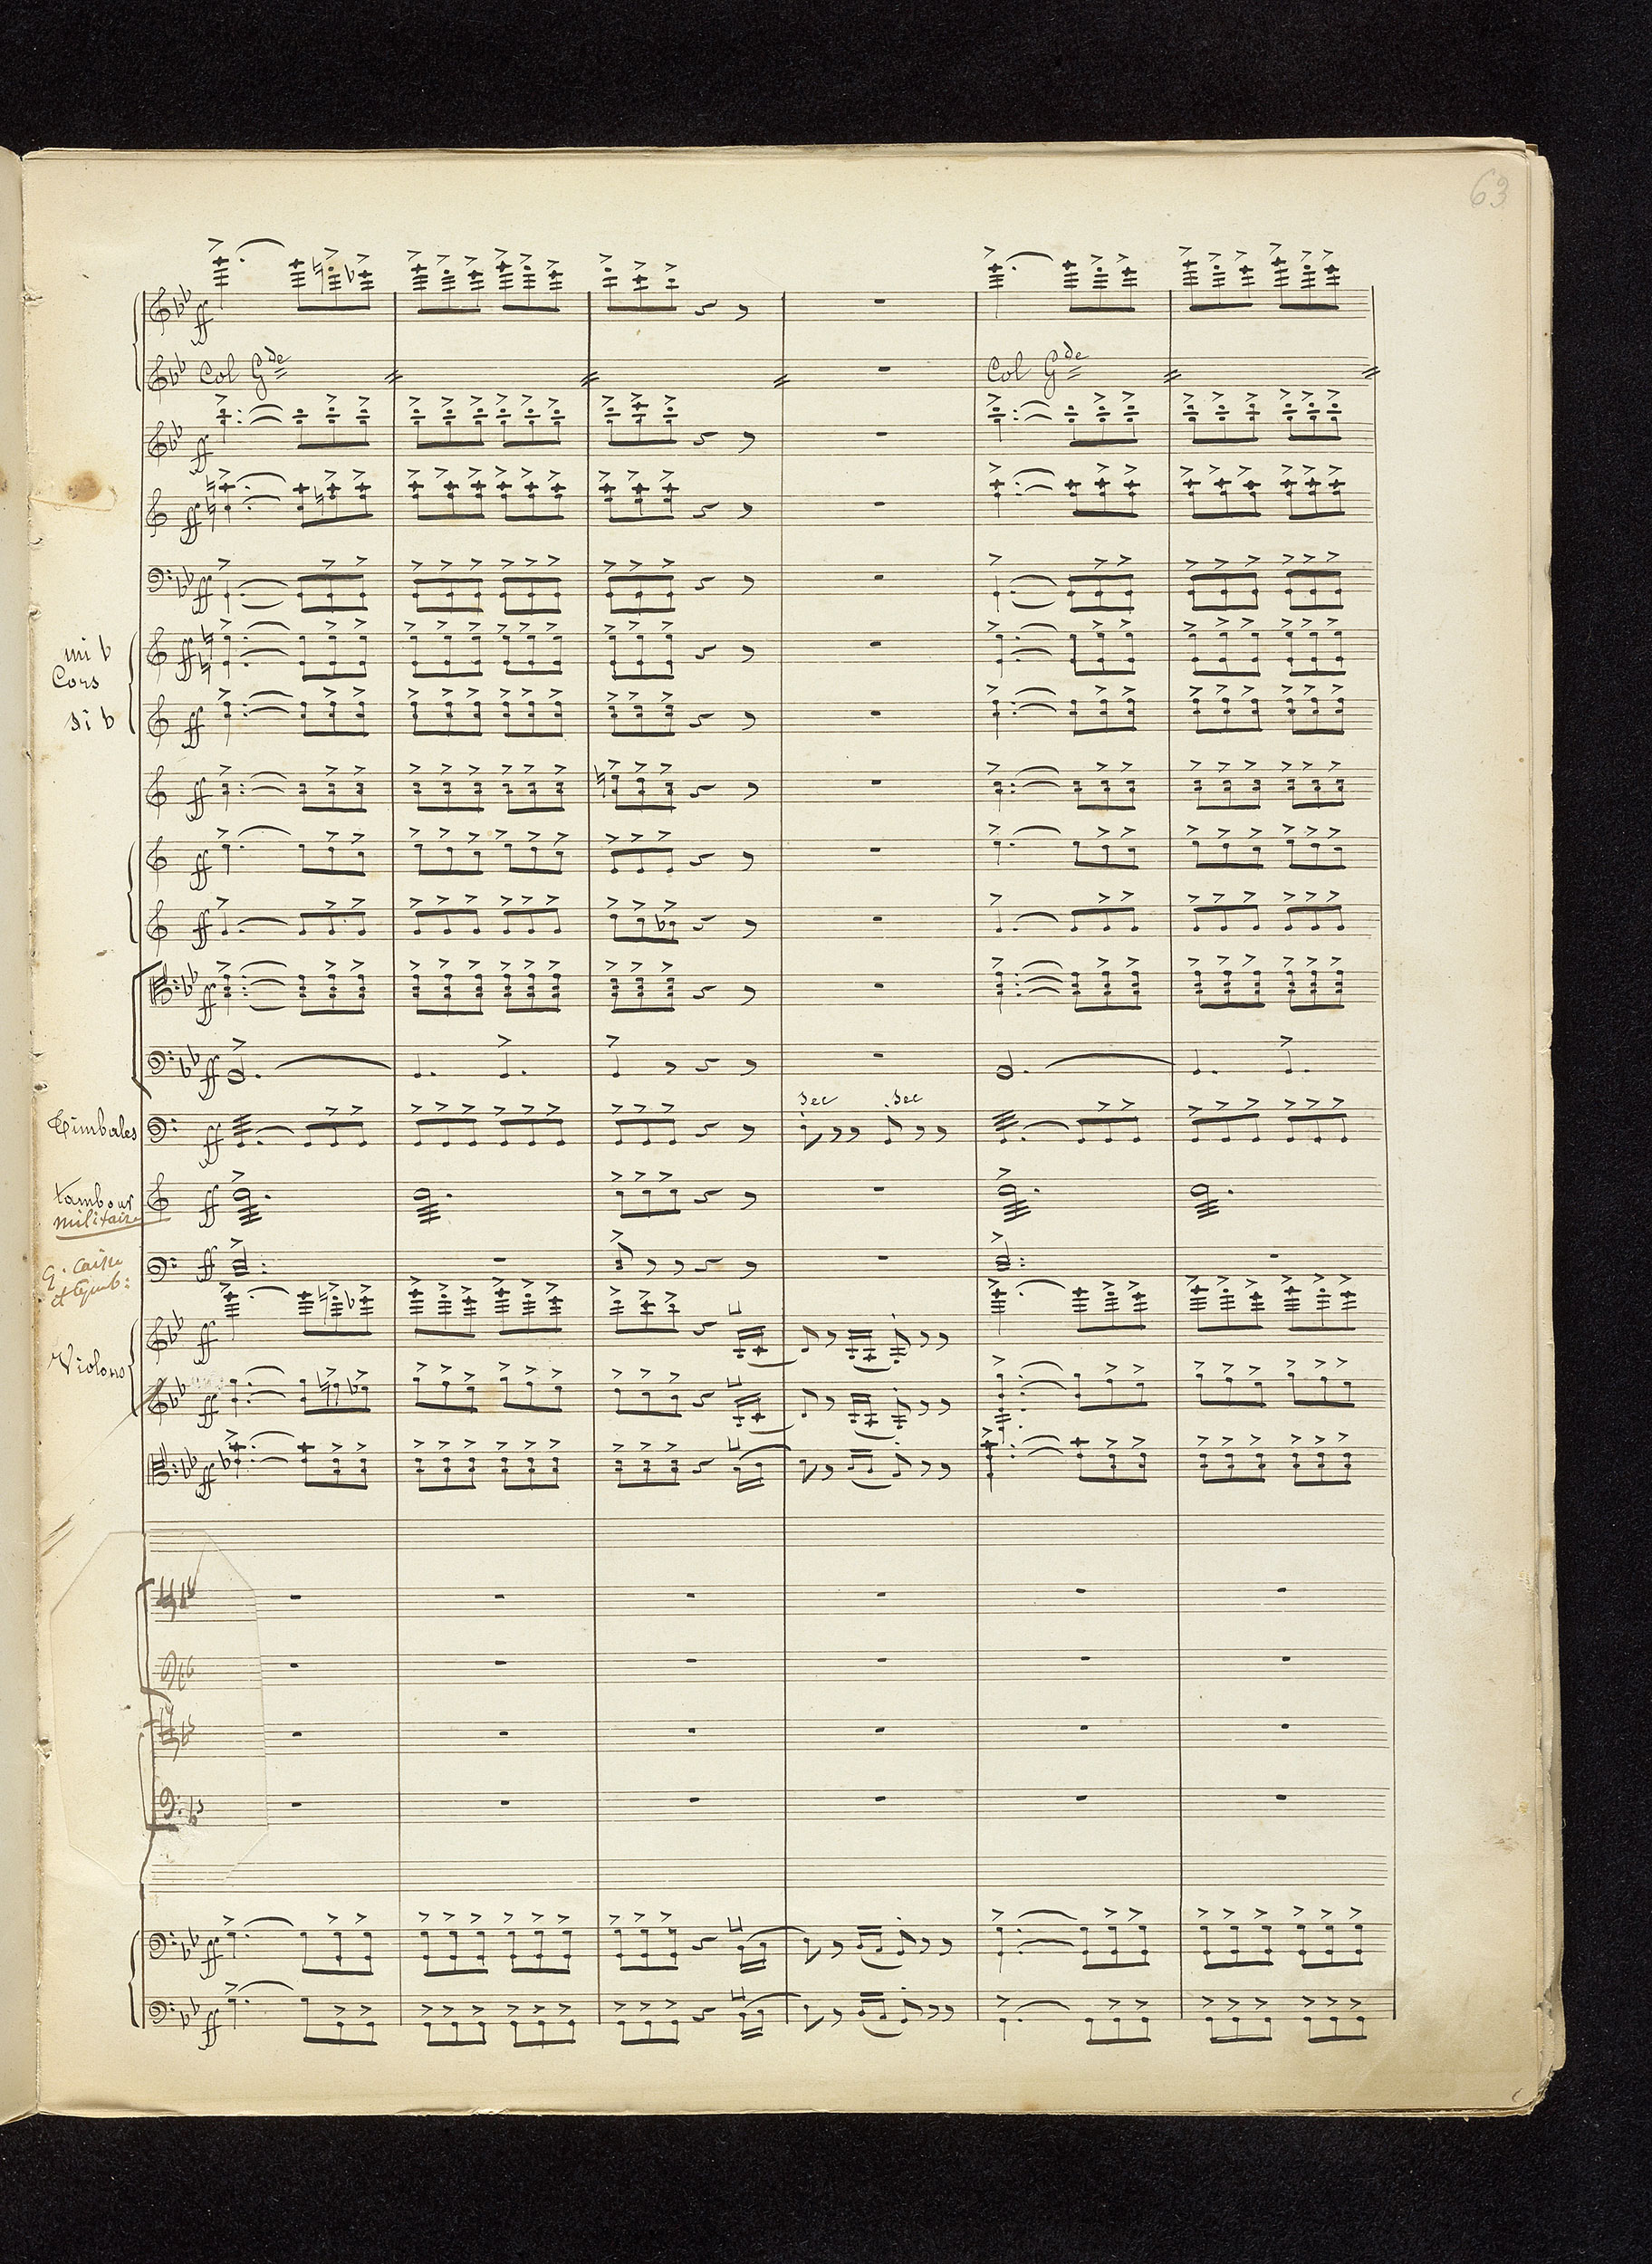 63
ff
Col Gde
Col Gde
ff
ff
ff
mi b
Cors
ff
si b
ff
ff
ff
ff
ff
ff
sec sec
Timbales
ff
tambour
militaire
ff
G. Caisse
et Cymb:
ff
Violons
ff
ff
ff
ff
ff